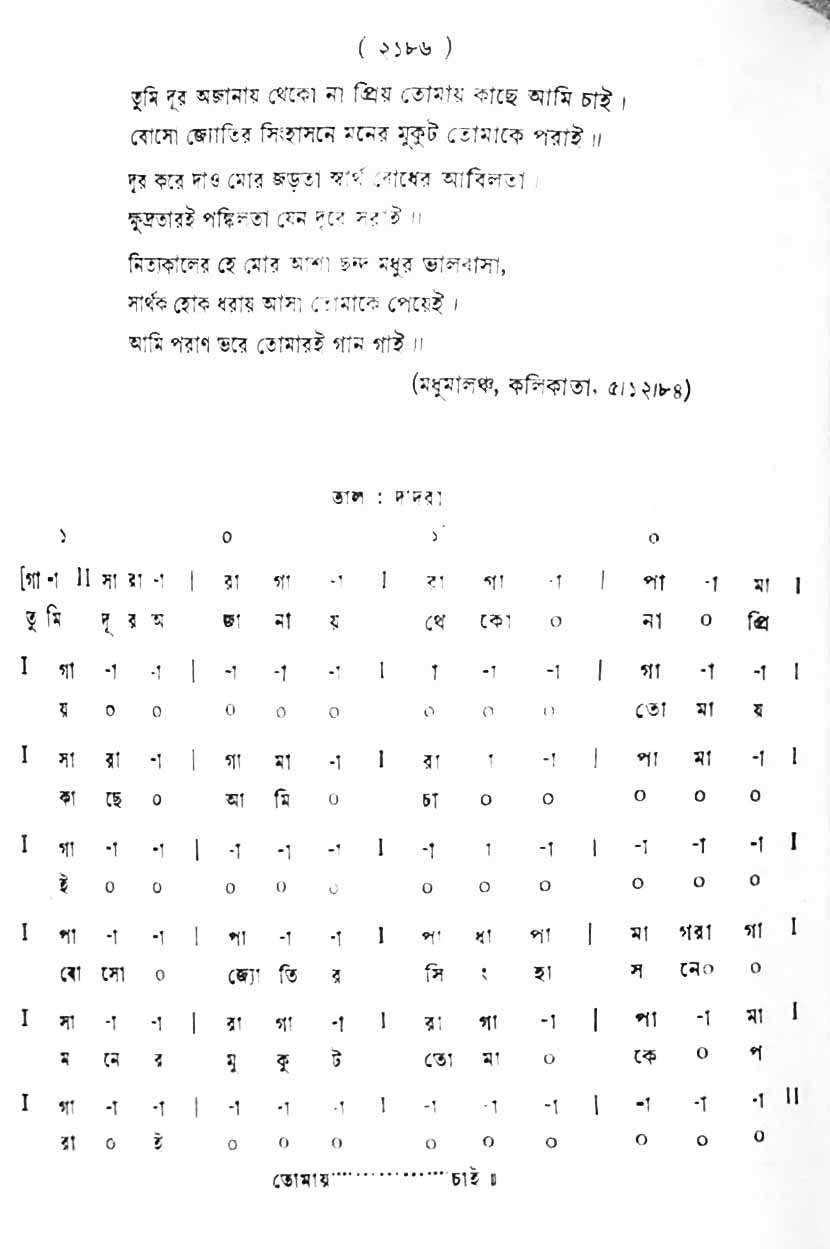 ( ২১৮৬ )
তুমি দূর অজানায় থেকো না প্রিয় তোমায় কাছে আমি চাই ।
বোসো জ্যোতির সিংহাসনে মনের মুকুট তোমাকে পরাই ॥
দূর করে দাও মোর জড়তা স্বার্থ বোধের আবিলতা ।
ক্ষুদ্রতারই পঙ্কিলতা যেন দূরে সরাই ॥
নিত্যকালের হে মোর আশা ছন্দ মধুর ভালবাসা,
সার্থক হোক ধরায় আসা তোমাকে পেয়েই ।
আমি পরাণ ভরে তোমারই গান গাই ॥
(মধুমালঞ্চ, কলিকাতা, ৫।১২।৮৪)
তাল : দাদরা
১ ০ ১ ০
[গা -া II সা রা -া | রা গা -া I রা গা -া | পা -া মা I
তু মি দূ র অ জা না য় থে কো ০ না ০ প্রি
I গা -া -া | -া -া -া I া -া -া | গা -া -া I
য় ০ ০ ০ ০ ০ ০ ০ ০ তো মা য়
I সা রা -া | গা মা -া I রা া -া | পা মা -া I
কা ছে ০ আ মি ০ চা ০ ০ ০ ০ ০
I গা -া -া | -া -া -া I -া া -া | -া -া -া I
ই ০ ০ ০ ০ ০ ০ ০ ০ ০ ০ ০
I পা -া -া | পা -া -া I পা ধা পা | মা গরা গা I
বো সো ০ জ্যো তি র সি ং হা স নে০ ০
I সা -া -া | রা গা -া I রা গা -া | পা -া মা I
ম নে র মু কু ট তো মা ০ কে ০ প
I গা -া -া | -া -া -া I -া -া -া | -া -া -া II
রা ০ ই ০ ০ ০ ০ ০ ০ ০ ০ ০
তোমায়··················চাই ॥